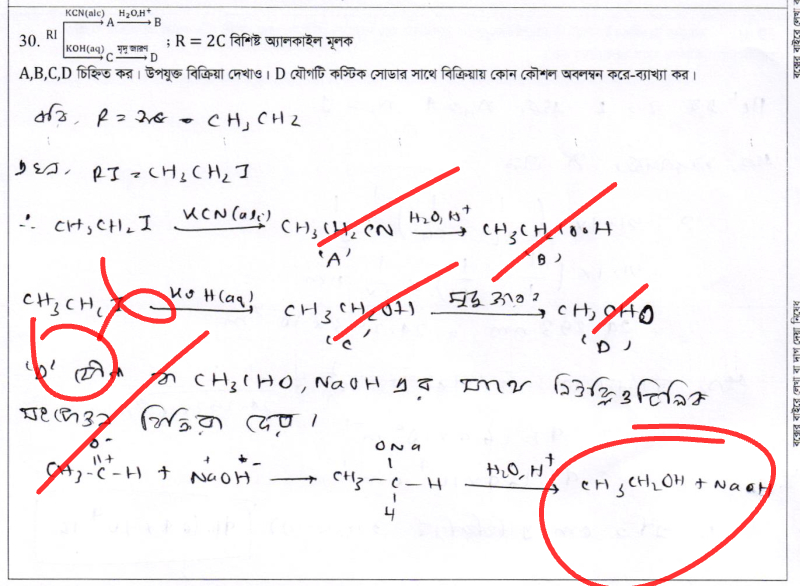 30. RI KCN(alc) A H₂O,H⁺ B
KOH(aq) C মৃদু জারণ D ; R = 2C বিশিষ্ট অ্যালকাইল মূলক
A,B,C,D চিহ্নিত কর। উপযুক্ত বিক্রিয়া দেখাও। D যৌগটি কস্টিক সোডার সাথে বিক্রিয়ায় কোন কৌশল অবলম্বন করে-ব্যাখ্যা কর।
ধরি, R = 2C = CH₃CH2
RI = CH₃CH₂I
∴ CH₃CH₂I KCN(alc) CH₃CH₂CN H₂O,H⁺ CH₃CH₂COOH
'A' 'B'
CH₃CH₂I KOH(aq) CH₃CH₂OH মৃদু জারণ CH₃CHO
'C' 'D'
'D' যৌগ CH₃CHO, NaOH এর সাথে নিউক্লিওফিলিক
বিক্রিয়া দেয়।
O⁻ ONa
CH₃-C-H + NaOH → CH₃-C-H H₂O,H⁺ CH₃CH₂OH + NaOH
4